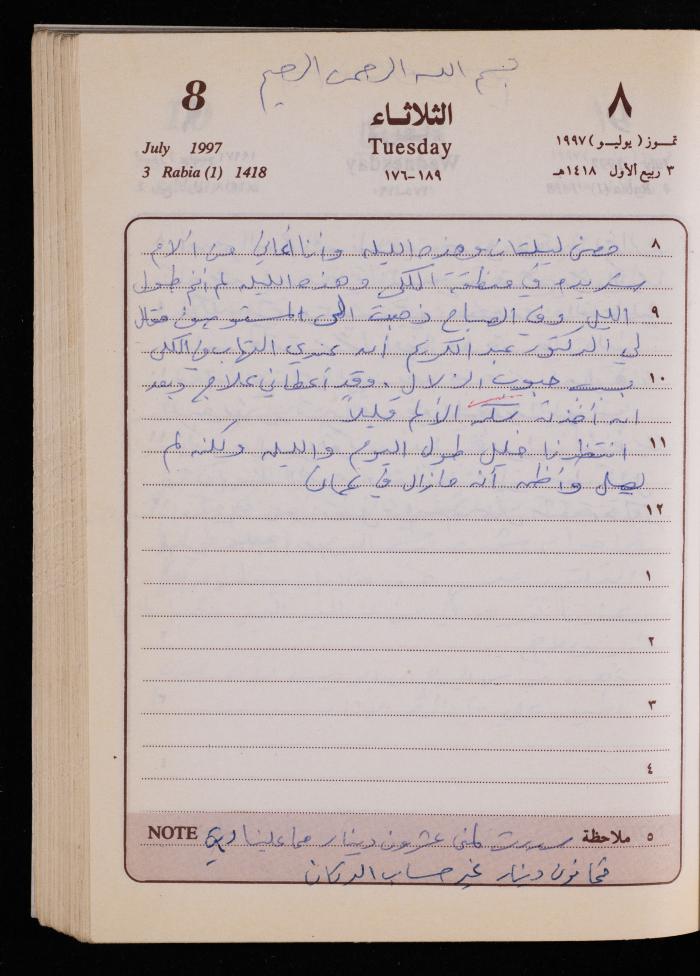 بسم الله الرحمن الرحيم
8
July 1997
3 Rabia (1) 1418
الثلاثاء
Tuesday
١٧٦-١٨٩
٨
تمـوز (يوليـو) ١٩٩٧
٣ ربيع الأول ١٤١٨هـ
٨ مضى ليلتان وهذه الليله وأنا أعاني من آلام
شديده في منطقة الكلى وهذه الليله لم أنم طول
٩ الليل وفي الصباح ذهبت الى المستوصف فقال
لي الدكتور عبد الكريم أنه عندي التهاب في الكلى
١٠ بسبب حبوب الزلال. وقد أعطاني علاج وبعد
ان أخذته سكن الألم قليلاً
١١ انتظرنا طول اليوم والليله ولكنه لم
يصل وأظنه أنه مازال في عمان
١٢
١
٢
٣
٤
٥ ملاحظة عشرون دينار علينا NOTE
دينار غير حساب الدكان